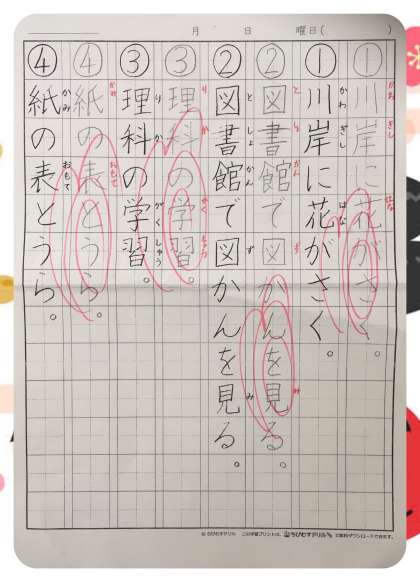 月 日 曜日( )
① 川岸に花がさく。
かわ ぎし はな
① 川岸に花がさく。
かわ ぎし はな
② 図書館で図かんを見る。
と しょ かん ず み
② 図書館で図かんを見る。
と しょ かん ず み
③ 理科の学習。
り か がく しゅう
③ 理科の学習。
り か がく しゅう
④ 紙の表とうら。
かみ おもて
④ 紙の表とうら。
かみ おもて
© ちびむすドリル この学習プリントは、ちびむすドリル で無料ダウンロードできます。